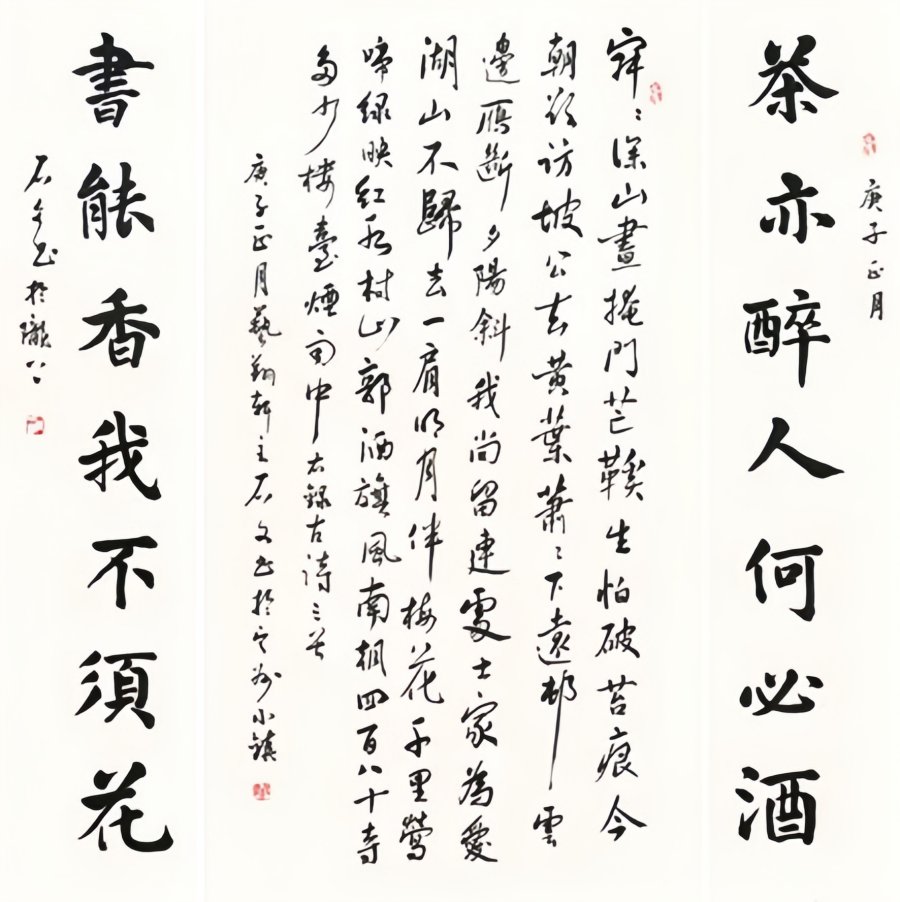 庚子正月
茶亦醉人何必酒
寂〻深山晝掩門芒鞵生怕破苔痕今
朝欲訪坡公去黃葉蕭〻下遠邨雲
邊雁斷夕陽斜我尚留連處士家為愛
湖山不歸去一肩明月伴梅花千里鶯
啼綠映紅水村山郭酒旗風南朝四百八十寺
多少樓臺煙雨中 右錄古詩三首
庚子正月藝翔軒主石文书於州小鎮
書能香我不須花
石文书於